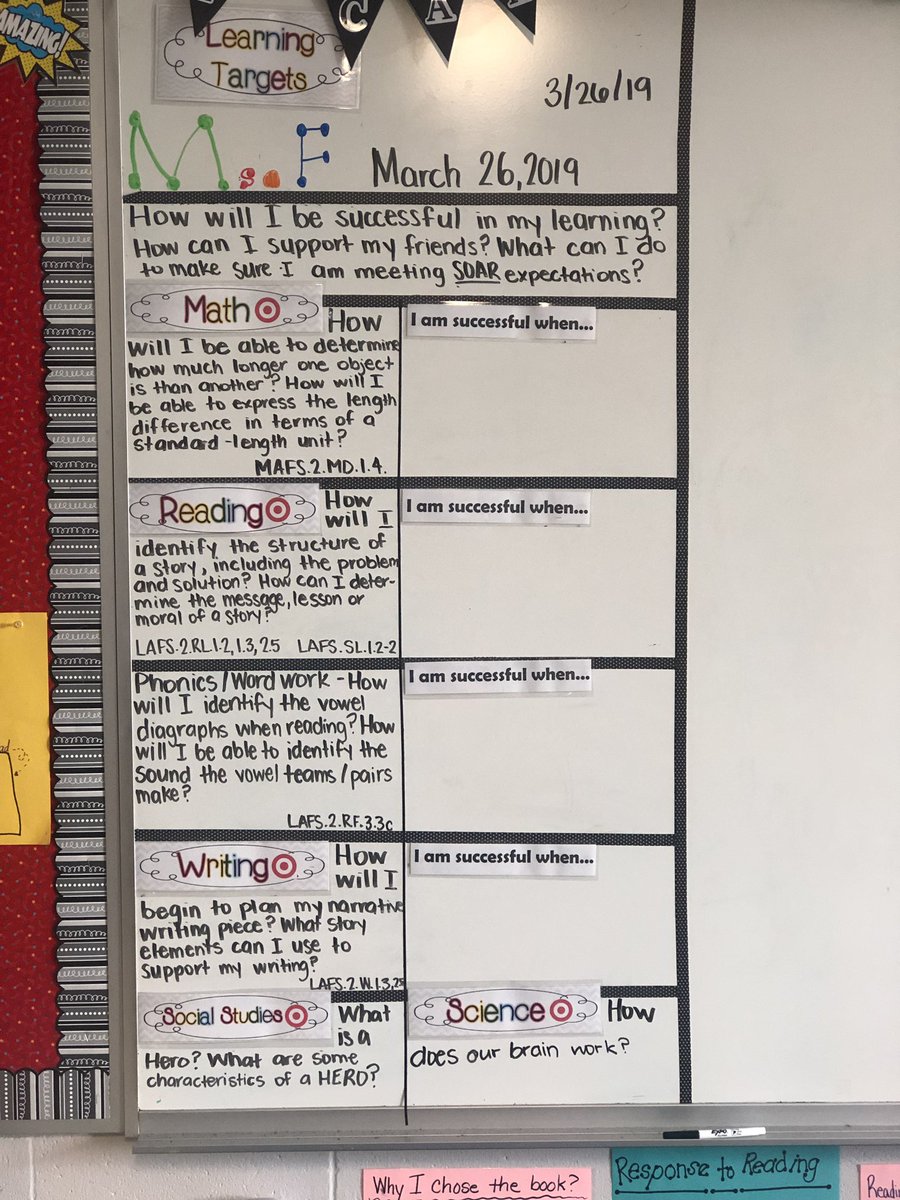 AMAZING!
C A
Learning
Targets
3/26/19
Ms. F
March 26, 2019
How will I be successful in my learning?
How can I support my friends? What can I do
to make sure I am meeting SOAR expectations?
Math
How
will I be able to determine
how much longer one object
is than another? How will I
be able to express the length
difference in terms of a
standard-length unit?
MAFS.2.MD.1.4.
I am successful when...
Reading
How
will I
identify the structure of
a story, including the problem
and solution? How can I deter-
mine the message, lesson or
moral of a story?
LAFS.2.RL.1.2, 1.3, 2.5 LAFS.SL.1.2-2
I am successful when...
Phonics/Word work - How
will I identify the vowel
diagraphs when reading? How
will I be able to identify the
sound the vowel teams/pairs
make?
LAFS.2.RF.3.3c
I am successful when...
Writing
How
will I
begin to plan my narrative
writing piece? What story
elements can I use to
support my writing?
LAFS.2.W.1.3, 2.5
I am successful when...
Social Studies
What
is a
Hero? What are some
characteristics of a HERO?
Science
How
does our brain work?
EXPO
Why I chose the book?
Response to Reading